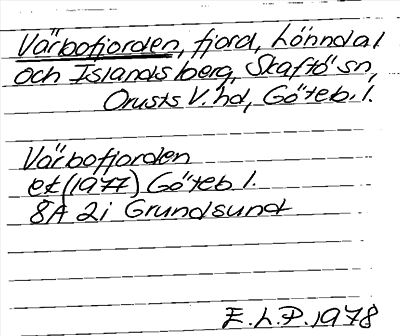 Värbofjorden, fjord, Lönndal
och Islandsberg, Skaftö sn,
Orusts V. hd, Göteb. l.
Värbofjorden
ek (1977) Göteb l.
8A 2i Grundsund
E. L. P. 1978